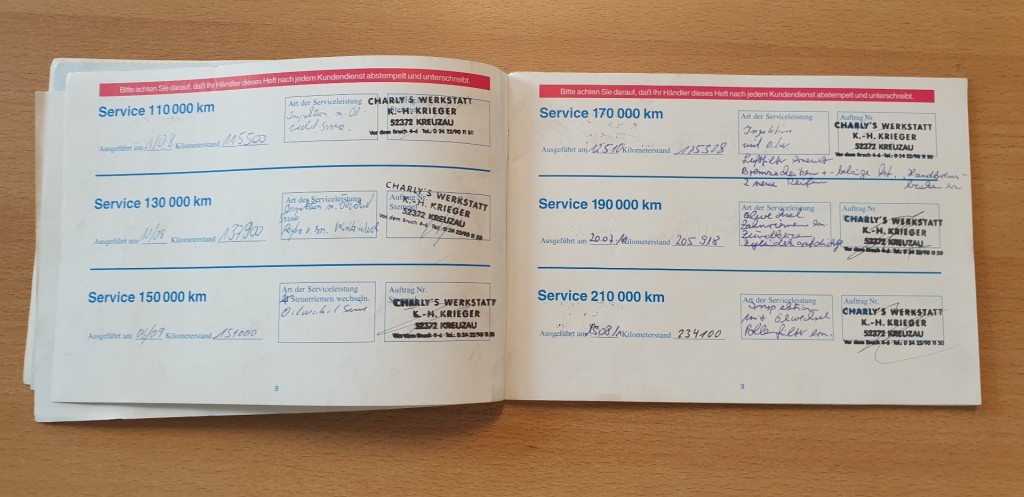 Bitte achten Sie darauf, daß Ihr Händler dieses Heft nach jedem Kundendienst abstempelt und unterschreibt.
Service 110 000 km
Art der Serviceleistung
CHARLY'S WERKSTATT
K.-H. KRIEGER
52372 KREUZAU
Vor dem Bruch 4-6 Tel.: 0 24 22/90 11 50
Ausgeführt am 1/08 Kilometerstand 115500
Service 130 000 km
Art der Serviceleistung
Auftrag Nr.
CHARLY'S WERKSTATT
K.-H. KRIEGER
52372 KREUZAU
Vor dem Bruch 4-6 Tel.: 0 24 22/90 11 50
Ausgeführt am Kilometerstand 137900
Service 150 000 km
Art der Serviceleistung
Steuerriemen wechseln.
Auftrag Nr.
CHARLY'S WERKSTATT
K.-H. KRIEGER
52372 KREUZAU
Vor dem Bruch 4-6 Tel.: 0 24 22/90 11 50
Ausgeführt am 06/09 Kilometerstand 151000
8
Bitte achten Sie darauf, daß Ihr Händler dieses Heft nach jedem Kundendienst abstempelt und unterschreibt.
Service 170 000 km
Art der Serviceleistung
Auftrag Nr.
CHARLY'S WERKSTATT
K.-H. KRIEGER
52372 KREUZAU
Vor dem Bruch 4-6 Tel.: 0 24 22/90 11 50
Ausgeführt am Kilometerstand 175378
Luftfilter erneuert
2 neue Reifen
Service 190 000 km
Art der Serviceleistung
Ölwechsel
Zahnriemen ern.
Zündkerzen
Auftrag Nr.
CHARLY'S WERKSTATT
K.-H. KRIEGER
52372 KREUZAU
Vor dem Bruch 4-6 Tel.: 0 24 22/90 11 50
Ausgeführt am Kilometerstand 205 918
Service 210 000 km
Art der Serviceleistung
Inspektion
mit Ölwechsel
Pollenfilter ern.
Auftrag Nr.
CHARLY'S WERKSTATT
K.-H. KRIEGER
52372 KREUZAU
Vor dem Bruch 4-6 Tel.: 0 24 22/90 11 50
Ausgeführt am Kilometerstand 234100
9